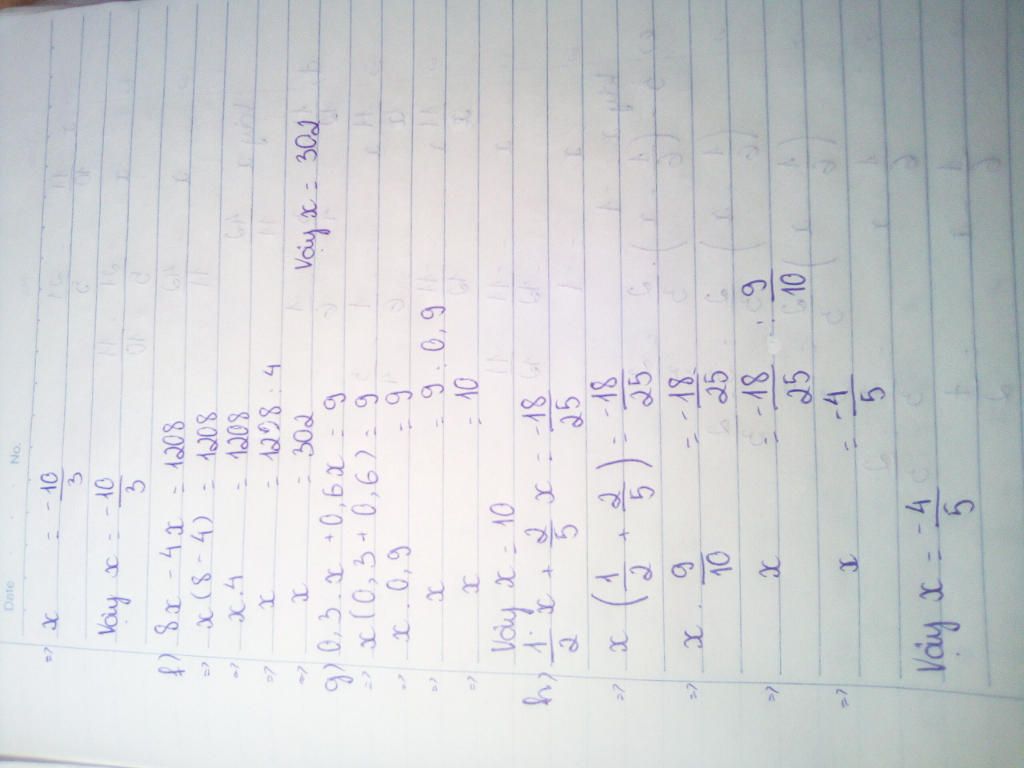 Date No.
=> x = -10/3
Vậy x = -10/3
f) 8x - 4x = 1208
=> x(8 - 4) = 1208
=> x.4 = 1208
=> x = 1208 : 4
=> x = 302 Vậy x = 302
g) 0,3.x + 0,6x = 9
=> x(0,3 + 0,6) = 9
=> x.0,9 = 9
=> x = 9 : 0,9
=> x = 10
Vậy x = 10
h) 1/2.x + 2/5 x = -18/25
=> x(1/2 + 2/5) = -18/25
=> x.9/10 = -18/25
=> x = -18/25 : 9/10
=> x = -4/5
Vậy x = -4/5